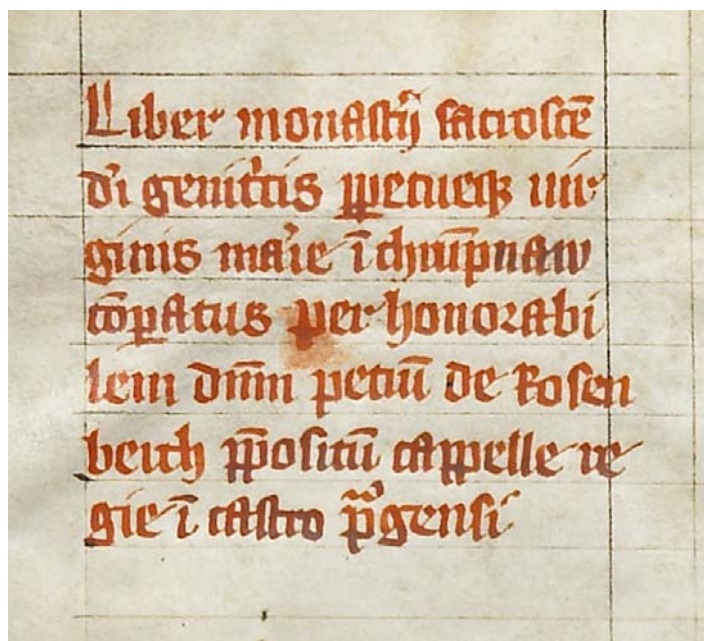 Liber monastīj sacroscē
dī genitͥcis ꝑpetueqꝫ uir
ginis maͥie ī chrumpnaw
cōꝑatus per honorabi
lem dnm̄ petrū de Rosen
berch p̄positū cappelle re
gie ī castro pͣgensi